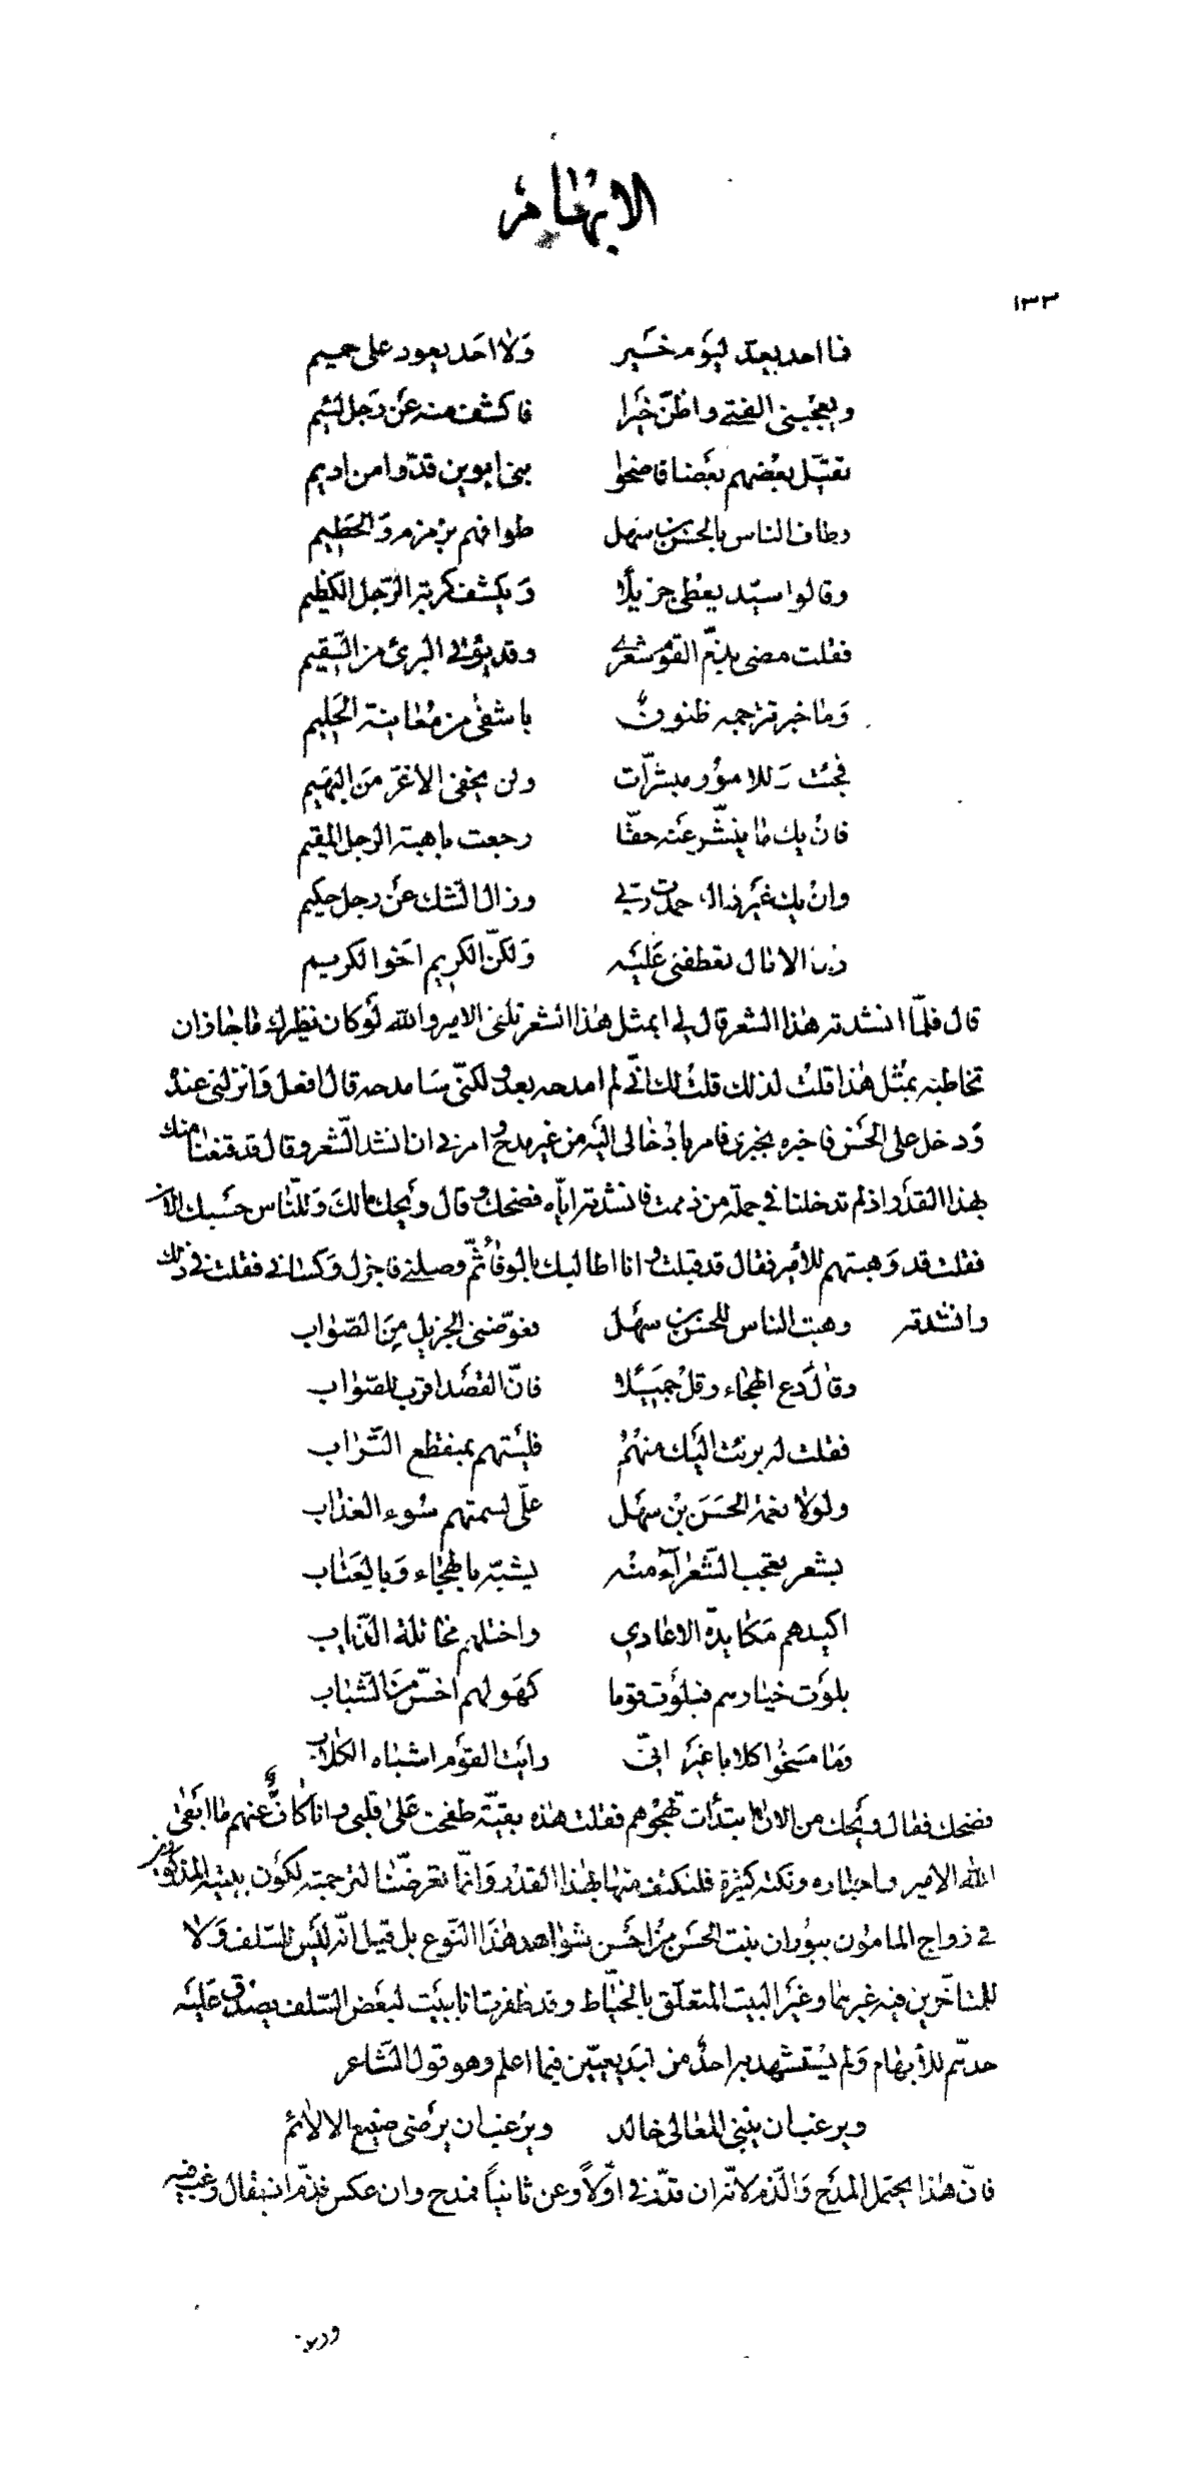 الابهام
١٣٣
فما احد يعد ليوم خير ولا احد يعود على حميم
ويعجبني الفتى واظن خيرا فاكشف منه عن رجل لئيم
تقيل بعضهم بعضا فاضحوا بني ابوين قدوا من اديم
وطاف الناس بالحسن بن سهل طوافهم بزمزم والحطيم
وقالوا سيد يعطي جزيلا ويكشف كربة الرجل الكظيم
فقلت مضى بذم القوم شعري وقد يؤتى البرئ من السقيم
وما خبر ترجمه ظنون باشفى من معاينة الحليم
فجئت وللامور مبشرات ولن يخفى الاغر من البهيم
فان يك ما ينشر عنه حقا رجعت باهبة الرجل المقيم
وان يك غير ذاك حمدت ربي وزال الشك عن رجل حكيم
الامال تعطفني عليه ولكن الكريم اخو الكريم
قال فلما انشدته هذا الشعر قال لي ابمثل هذا الشعر تلقى الامير والله لو كان نظيرك ما جاز ان
تخاطبه بمثل هذا قلت لذلك قلت لك اني لم امدحه بعد ولكني سامدحه قال افعل وانزلني عنده
ودخل على الحسن فاخبره بخبري فامر بادخالي اليه من غير مدح وامرني ان انشد الشعر وقال قد قنعنا منك
بهذا القدر اذ لم تدخلنا في جملة من ذممت فانشدته اياه فضحك وقال ويحك مالك وللناس حسبك الان
فقلت قد وهبتهم للأمير فقال قد قبلت وانا اطالبك بالوفاء ثم وصلني فاجزل وكساني فقلت في ذلك
وانشدته وهبت الناس للحسن بن سهل فعوضني الجزيل من الصواب
وقال دع الهجاء وقل جميلا فان القصد اقرب للصواب
فقلت له برئت اليك منهم فليتهم بمنقطع التراب
ولولا نعمة الحسن بن سهل علي لسمتهم سوء العذاب
بشعر يعجب الشعراء منه يشبه بالهجاء وبالعتاب
اكيدهم مكايدة الاعادي واختلهم مخاتلة الذئاب
بلوت خيارهم فبلوت قوما كهولهم اخس من الشباب
وما مسخوا كلابا غير اني رايت القوم اشباه الكلاب
فضحك فقال ويحك من الان ابتدأت تهجوهم فقلت هذه بقية طفحت على قلبي وانا كاف عنهم ما ابقى
الله الامير واخباره ونكته كثيرة فلنكتف منها بهذا القدر وانما تعرضنا لترجمته لكون بيتيه المذكورين
في زواج المامون ببوران بنت الحسن من احسن شواهد هذا النوع بل قيل انه ليس للسلف ولا
للمتاخرين فيه غيرهما وغير البيت المتعلق بالخياط وقد ظفرت انا ببيت لبعض السلف يصدق عليه
حدهم للأبهام ولم يستشهد به احد من البديعيين فيما اعلم وهو قول الشاعر
ويرغب ان يبني المعالي خالد ويرغب ان يرضى صنيع الالائم
فان هذا يحتمل المدح والذم لانه ان قدر في اولا وعن ثانيا فمدح وان عكس فذم اذ يقال رغب فيه